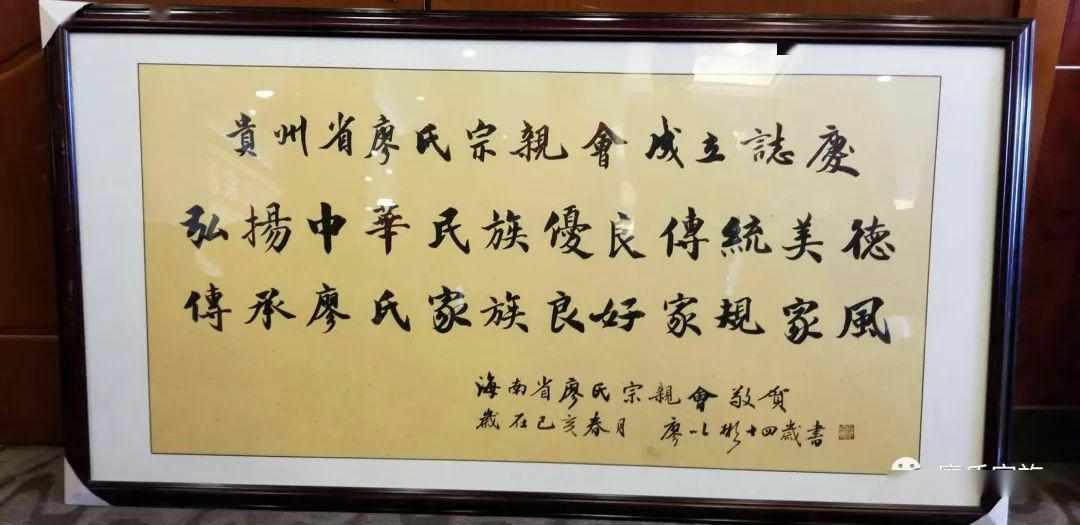 貴州省廖氏宗親會成立誌慶
弘揚中華民族優良傳統美德
傳承廖氏家族良好家規家風
海南省廖氏宗親會敬賀
歲在己亥春月 廖以彬十四歲書
廖氏家族